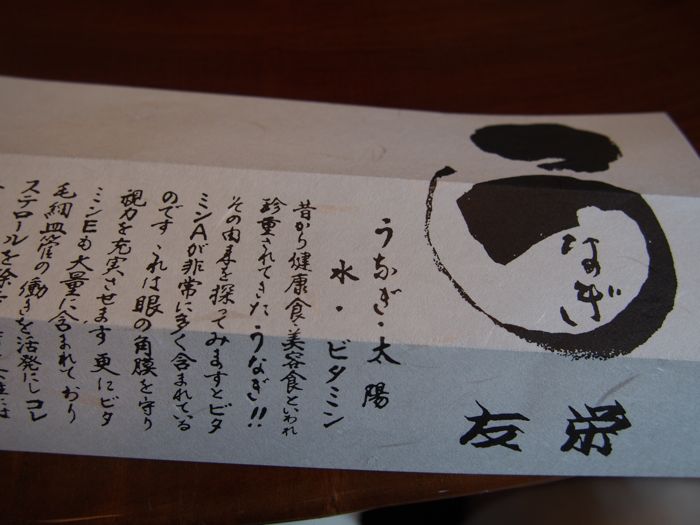 う
なぎ
友栄
うなぎ・太陽
水・ビタミン
昔から健康食・美容食といわれ
珍重されてきたうなぎ!!
その内容を探ってみますとビタ
ミンAが非常に多く含まれている
のです これは眼の角膜を守り
視力を充実させます 更にビタ
ミンEも大量に含まれており
毛細血管の働きを活発にし コレ
ステロールを除